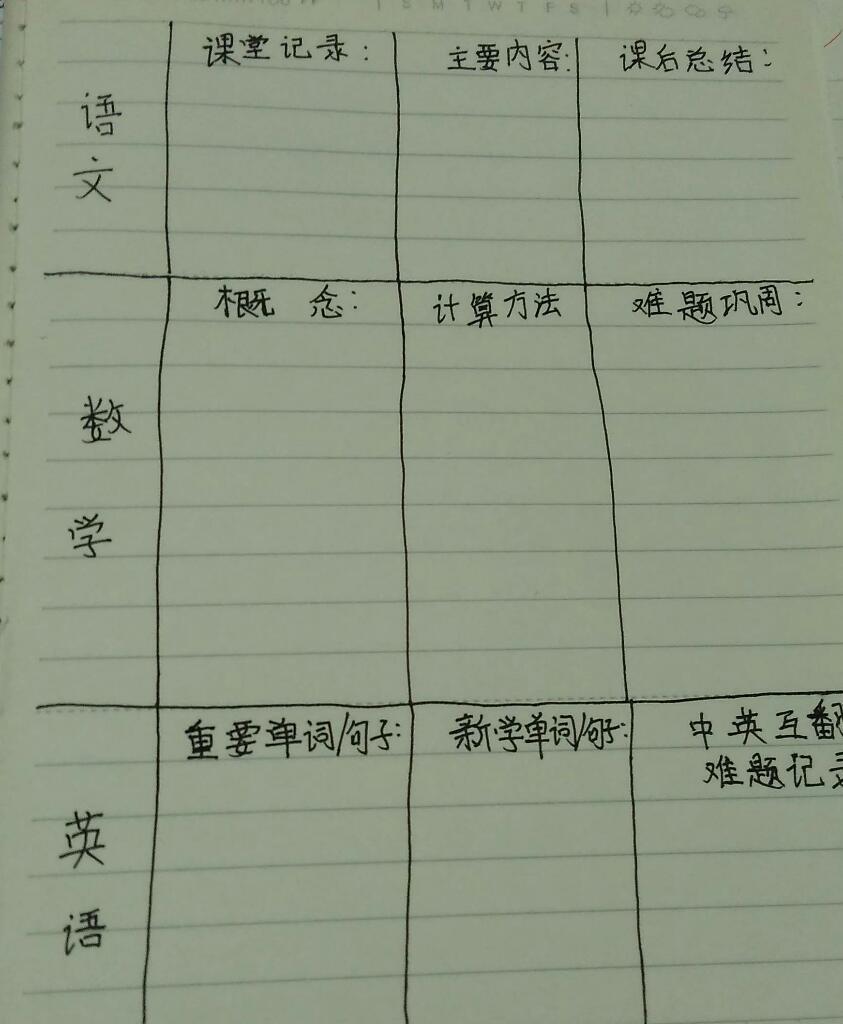 S M T W T F S
课堂记录: 主要内容: 课后总结:
语
文
概 念: 计算方法 难题巩周:
数
学
重要单词/句子: 新学单词/句子: 中英互翻
难题记录
英
语